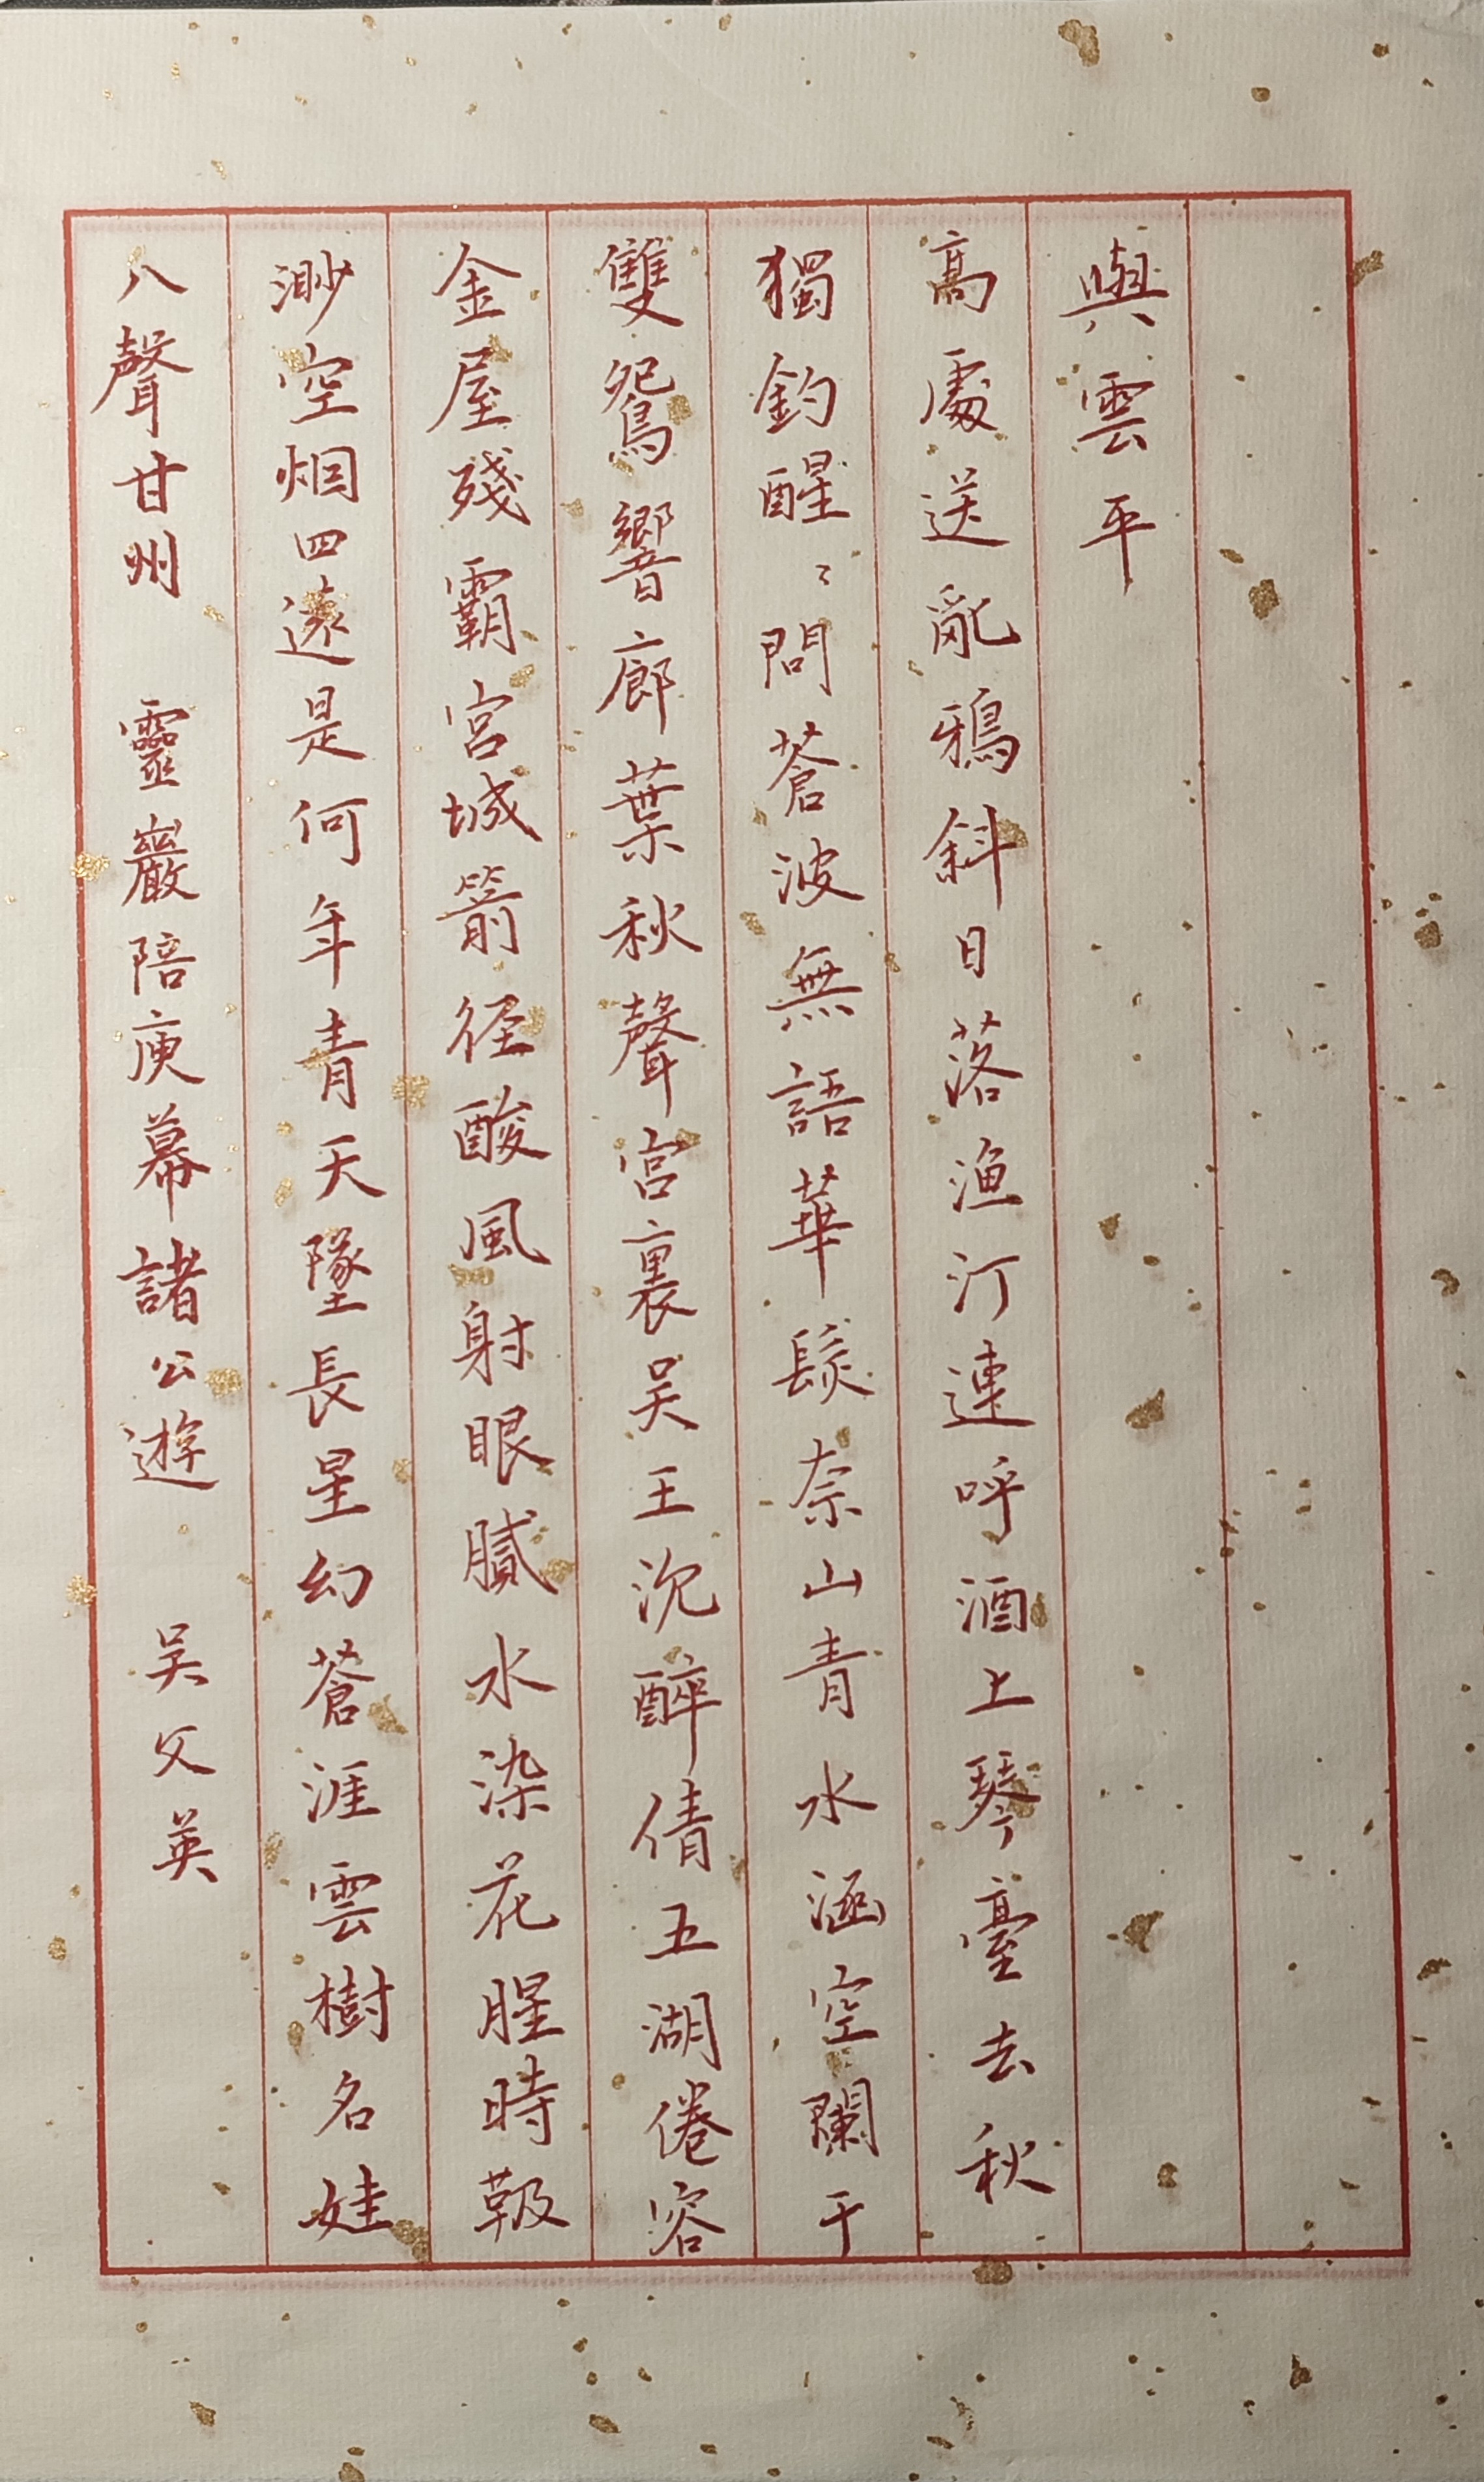 八聲甘州　靈巖陪庾幕諸公遊　吴文英
渺空烟四遠是何年青天墜長星幻蒼涯雲樹名娃
金屋殘霸宮城箭径酸風射眼膩水染花腥時靸
雙鴛響廊葉秋聲宮裏吴王沉醉倩五湖倦客
獨釣醒〻問蒼波無語華髮奈山青水涵空闌干
高處送亂鴉斜日落漁汀連呼酒上琴臺去秋
與雲平